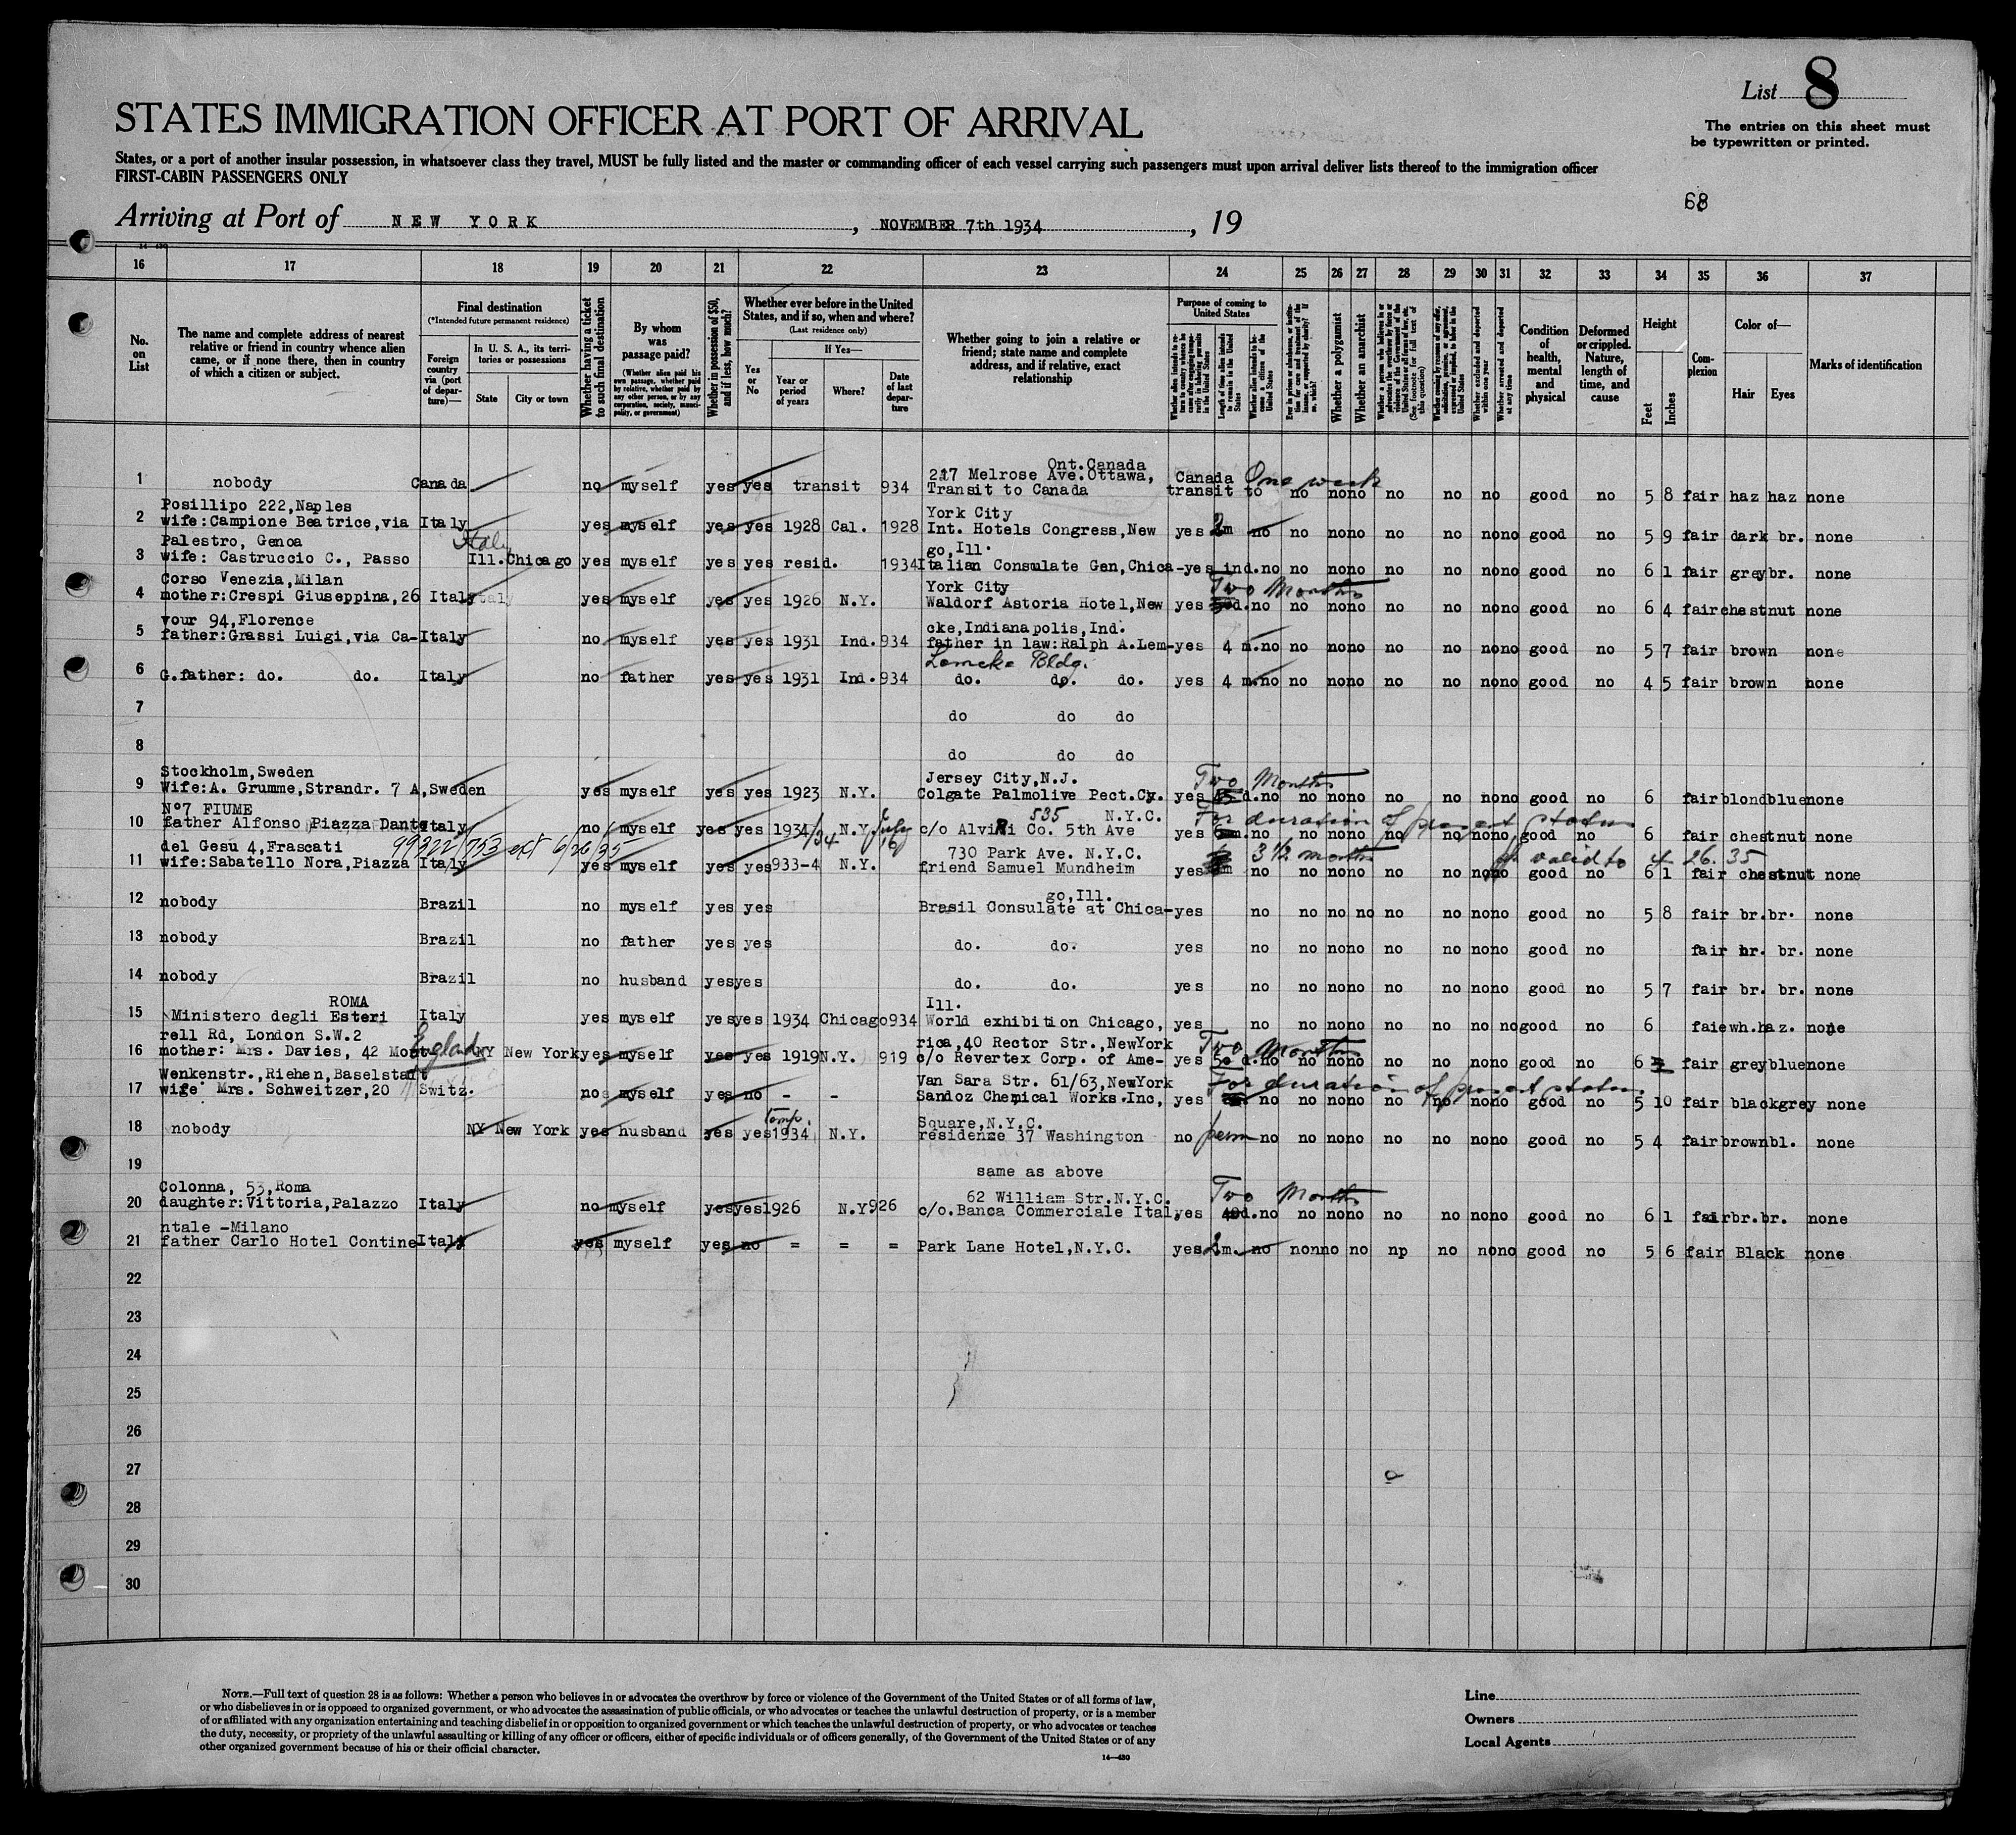 List 8
STATES IMMIGRATION OFFICER AT PORT OF ARRIVAL
The entries on this sheet must
be typewritten or printed.
States, or a port of another insular possession, in whatsoever class they travel, MUST be fully listed and the master or commanding officer of each vessel carrying such passengers must upon arrival deliver lists thereof to the immigration officer
FIRST-CABIN PASSENGERS ONLY
68
Arriving at Port of NEW YORK, NOVEMBER 7th 1934, 19
16 17 18 19 20 21 22 23 24 25 26 27 28 29 30 31 32 33 34 35 36 37
No. on List
The name and complete address of nearest relative or friend in country whence alien came, or if none there, then in country of which a citizen or subject.
Final destination
(*Intended future permanent residence)
Foreign country via (port of departure)—
In U. S. A., its territories or possessions
State
City or town
Whether having a ticket to such final destination
By whom was passage paid?
(Whether alien paid his own passage, whether paid by relative, whether paid by any other person, or by any corporation, society, municipality, or government)
Whether in possession of $50, and if less, how much?
Whether ever before in the United States, and if so, when and where?
(Last residence only)
Yes or No
If Yes—
Year or period of years
Where?
Date of last departure
Whether going to join a relative or friend; state name and complete address, and if relative, exact relationship
Purpose of coming to United States
Length of time alien intends to remain in the United States
Whether alien intends to become a citizen of the United States
Whether a polygamist
Whether an anarchist
Whether excluded and deported within one year
Whether arrested and deported at any time
Condition of health, mental and physical
Deformed or crippled. Nature, length of time, and cause
Height
Feet
Inches
Complexion
Color of—
Hair
Eyes
Marks of identification
Ont.Canada
217 Melrose Ave.Ottawa, Canada One week
1 nobody Canada no myself yes yes transit 934 Transit to Canada transit to no no no no no no good no 5 8 fair haz haz none
Posillipo 222,Naples York City
2 wife:Campione Beatrice,via Italy yes myself yes yes 1928 Cal. 1928 Int. Hotels Congress,New yes 2m no no no no no no no no good no 5 9 fair dark br. none
Palestro, Genoa Italy go,Ill.
3 wife: Castruccio C., Passo Ill.Chicago yes myself yes yes resid. 1934 Italian Consulate Gen,Chica-yes ind.no no no no no no no no good no 6 1 fair grey br. none
Corso Venezia,Milan York City Two Months
4 mother:Crespi Giuseppina,26 Italy yes myself yes yes 1926 N.Y. Waldorf Astoria Hotel,New yes d.no no no no no no no no good no 6 4 fair chestnut none
vour 94,Florence cke,Indianapolis,Ind.
5 father:Grassi Luigi,via Ca-Italy no myself yes yes 1931 Ind. 934 father in law:Ralph A.Lem-yes 4 m.no no no no no no no no good no 5 7 fair brown none
Lemcke Bldg.
6 G.father: do. do. Italy no father yes yes 1931 Ind. 934 do. do. do. yes 4 m.no no no no no no no no good no 4 5 fair brown none
7 do do do
8 do do do
Stockholm,Sweden Jersey City,N.J. Two Months
9 Wife:A. Grumme,Strandr. 7 A,Sweden yes myself yes yes 1923 N.Y. Colgate Palmolive Pect.Cy. yes d.no no no no no no no no good no 6 fair blond blue none
N°7 FIUME 535 N.Y.C. For duration of present status
10 father Alfonso Piazza Dante Italy no myself yes yes 1934 N.Y. July 16 c/o Alvini Co. 5th Ave yes 6m.no no no no no no no no good no 6 fair chestnut none
del Gesù 4,Frascati 99322/753 ext 6/26/35 730 Park Ave. N.Y.C. 3 1/2 months valid to 4 26. 35
11 wife:Sabatello Nora,Piazza Italy yes myself yes yes 933-4 N.Y. friend Samuel Mundheim yes no no no no no no no no good no 6 1 fair chestnut none
go,Ill.
12 nobody Brazil no myself yes yes Brasil Consulate at Chica-yes no no no no no no no no good no 5 8 fair br.br. none
13 nobody Brazil no father yes yes do. do. yes no no no no no no no no good no fair br. br. none
14 nobody Brazil no husband yes yes do. do. yes no no no no no no no no good no 5 7 fair br. br. none
ROMA Ill.
15 Ministero degli Esteri Italy yes myself yes yes 1934 Chicago 934 World exhibition Chicago, yes no no no no no no no no good no 6 faie wh.haz. none
rell Rd, London S.W.2 England rica,40 Rector Str.,NewYork Two Months
16 mother: Mrs. Davies, 42 Mont- NY New York yes myself yes yes 1919 N.Y. 919 c/o Revertex Corp. of Ame- yes 50 d.no no no no no no no no good no 6 fair grey blue none
Wenkenstr.,Riehen,Baselstadt Van Sara Str. 61/63,NewYork For duration of present status
17 wife Mrs. Schweitzer,20 Switz. no myself yes no - - Sandoz Chemical Works.Inc, yes no no no no no no no no good no 5 10 fair black grey none
temp. Square,N.Y.C.
18 nobody NY New York yes husband yes yes 1934 N.Y. residense 37 Washington no perm no no no no no no no no good no 5 4 fair brown bl. none
19 same as above
Colonna, 53,Roma 62 William Str.N.Y.C. Two Months
20 daughter:Vittoria,Palazzo Italy no myself yes yes 1926 N.Y 926 c/o.Banca Commerciale Ital, yes 40d.no no no no no no no no good no 6 1 fair br.br. none
ntale -Milano
21 father Carlo Hotel Contine Italy yes myself yes no = = = Park Lane Hotel,N.Y.C. yes 2m. no no no no np no no no good no 5 6 fair Black none
22
23
24
25
26
27
28
29
30
NOTE.—Full text of question 28 is as follows: Whether a person who believes in or advocates the overthrow by force or violence of the Government of the United States or of all forms of law,
or who disbelieves in or is opposed to organized government, or who advocates the assassination of public officials, or who advocates or teaches the unlawful destruction of property, or is a member
of or affiliated with any organization entertaining and teaching disbelief in or opposition to organized government or which teaches the unlawful destruction of property, or who advocates or teaches
the duty, necessity, or propriety of the unlawful assaulting or killing of any officer or officers, either of specific individuals or of officers generally, of the Government of the United States or of any
other organized government because of his or their official character.
14—430
Line
Owners
Local Agents